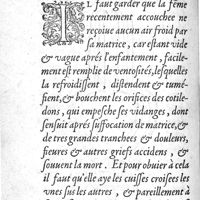 IL faut garder que la fẽme
recentement accouchee ne
reçoiue aucun air froid par
sa matrice, car estant vide
& vague aprés l'enfantement, facile-
ment est remplie de ventosités, lesquelles
la refroidissent, distendent & tumé-
fient, & bouchent les orifices des cotile-
dons, qui empesche ses vidanges, dont
s'ensuit aprés suffocation de matrice, &
de tres grandes tranchees & douleurs,
fieures & autres griefs accidens, &
souuent la mort. Et pour obuier à cela
il faut qu'elle aye les cuisses croisees les
vnes sus les autres, & pareillement à